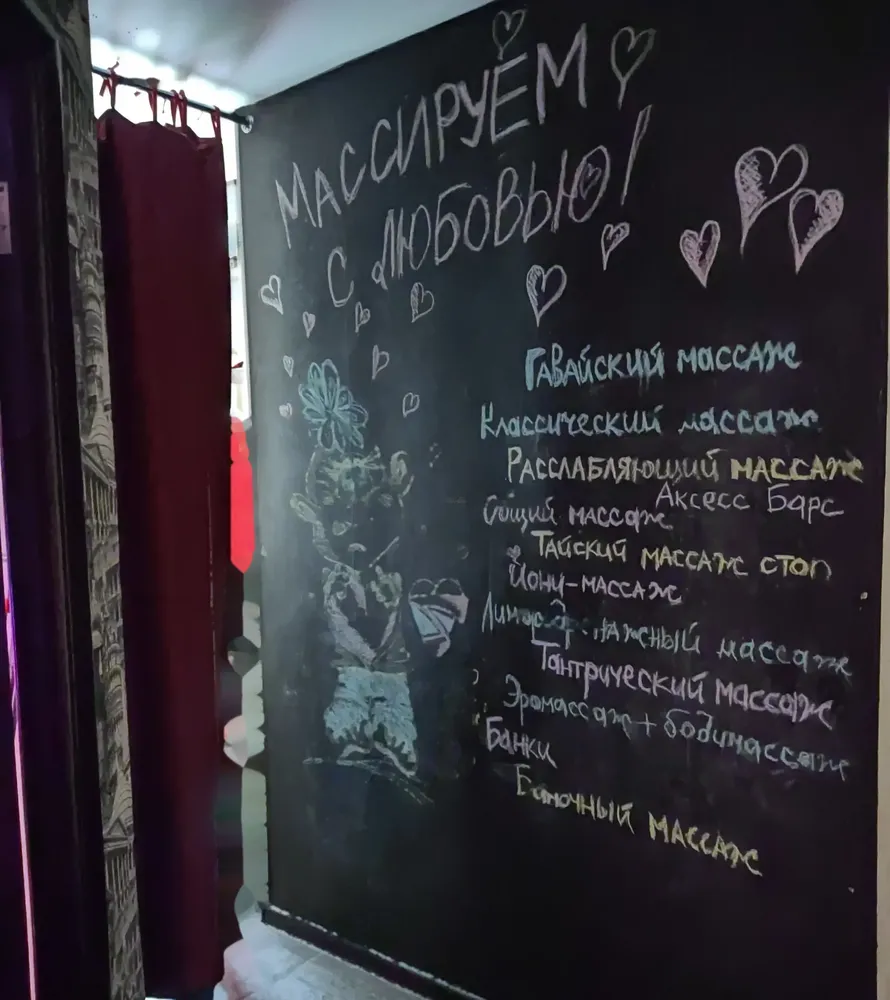 МАССИРУЕМ
С ЛЮБОВЬЮ!
Гавайский массаж
Классический массаж
Расслабляющий массаж
Аксесс Барс
Общий массаж
Тайский массаж стоп
Йони-массаж
массаж
Тантрический массаж
Эромассаж + бодимассаж
Банки
Баночный массаж